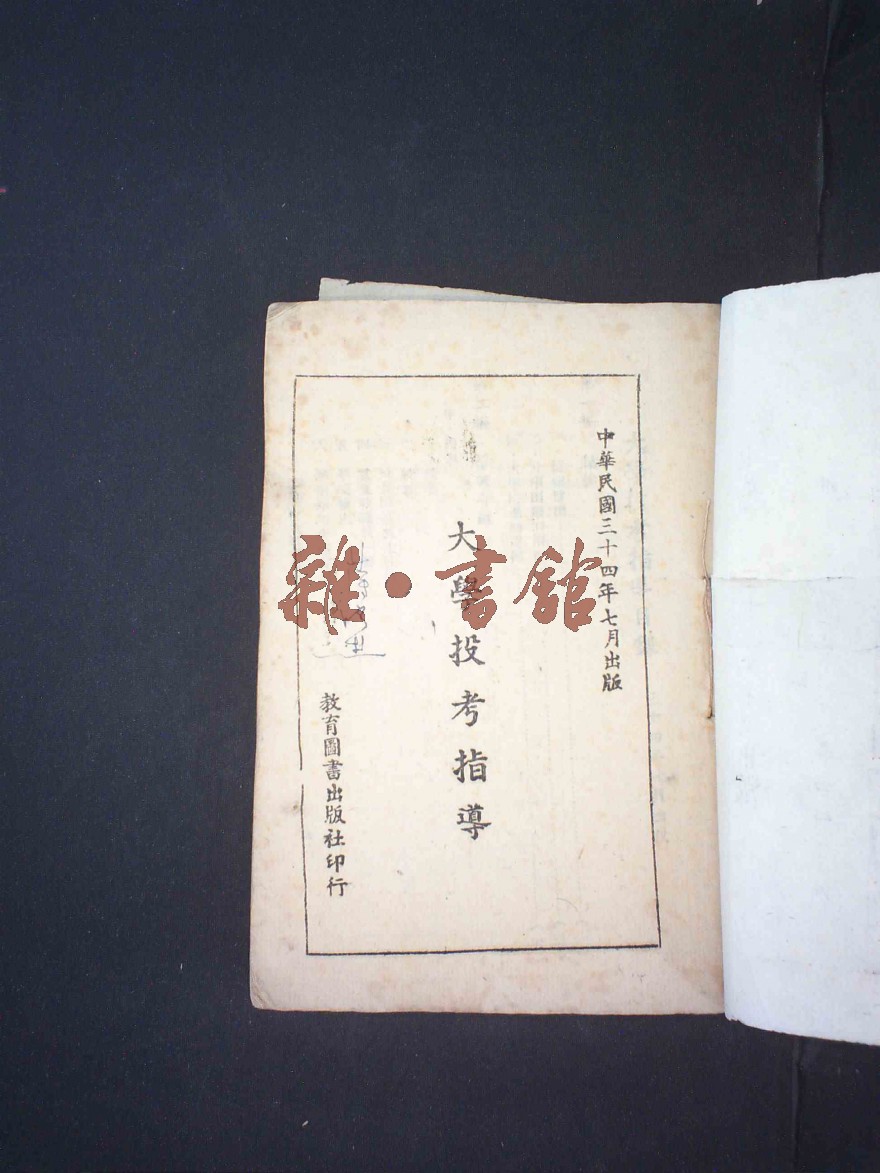 中華民國三十四年七月出版
大學投考指導
教育圖書出版社印行
雜·書館